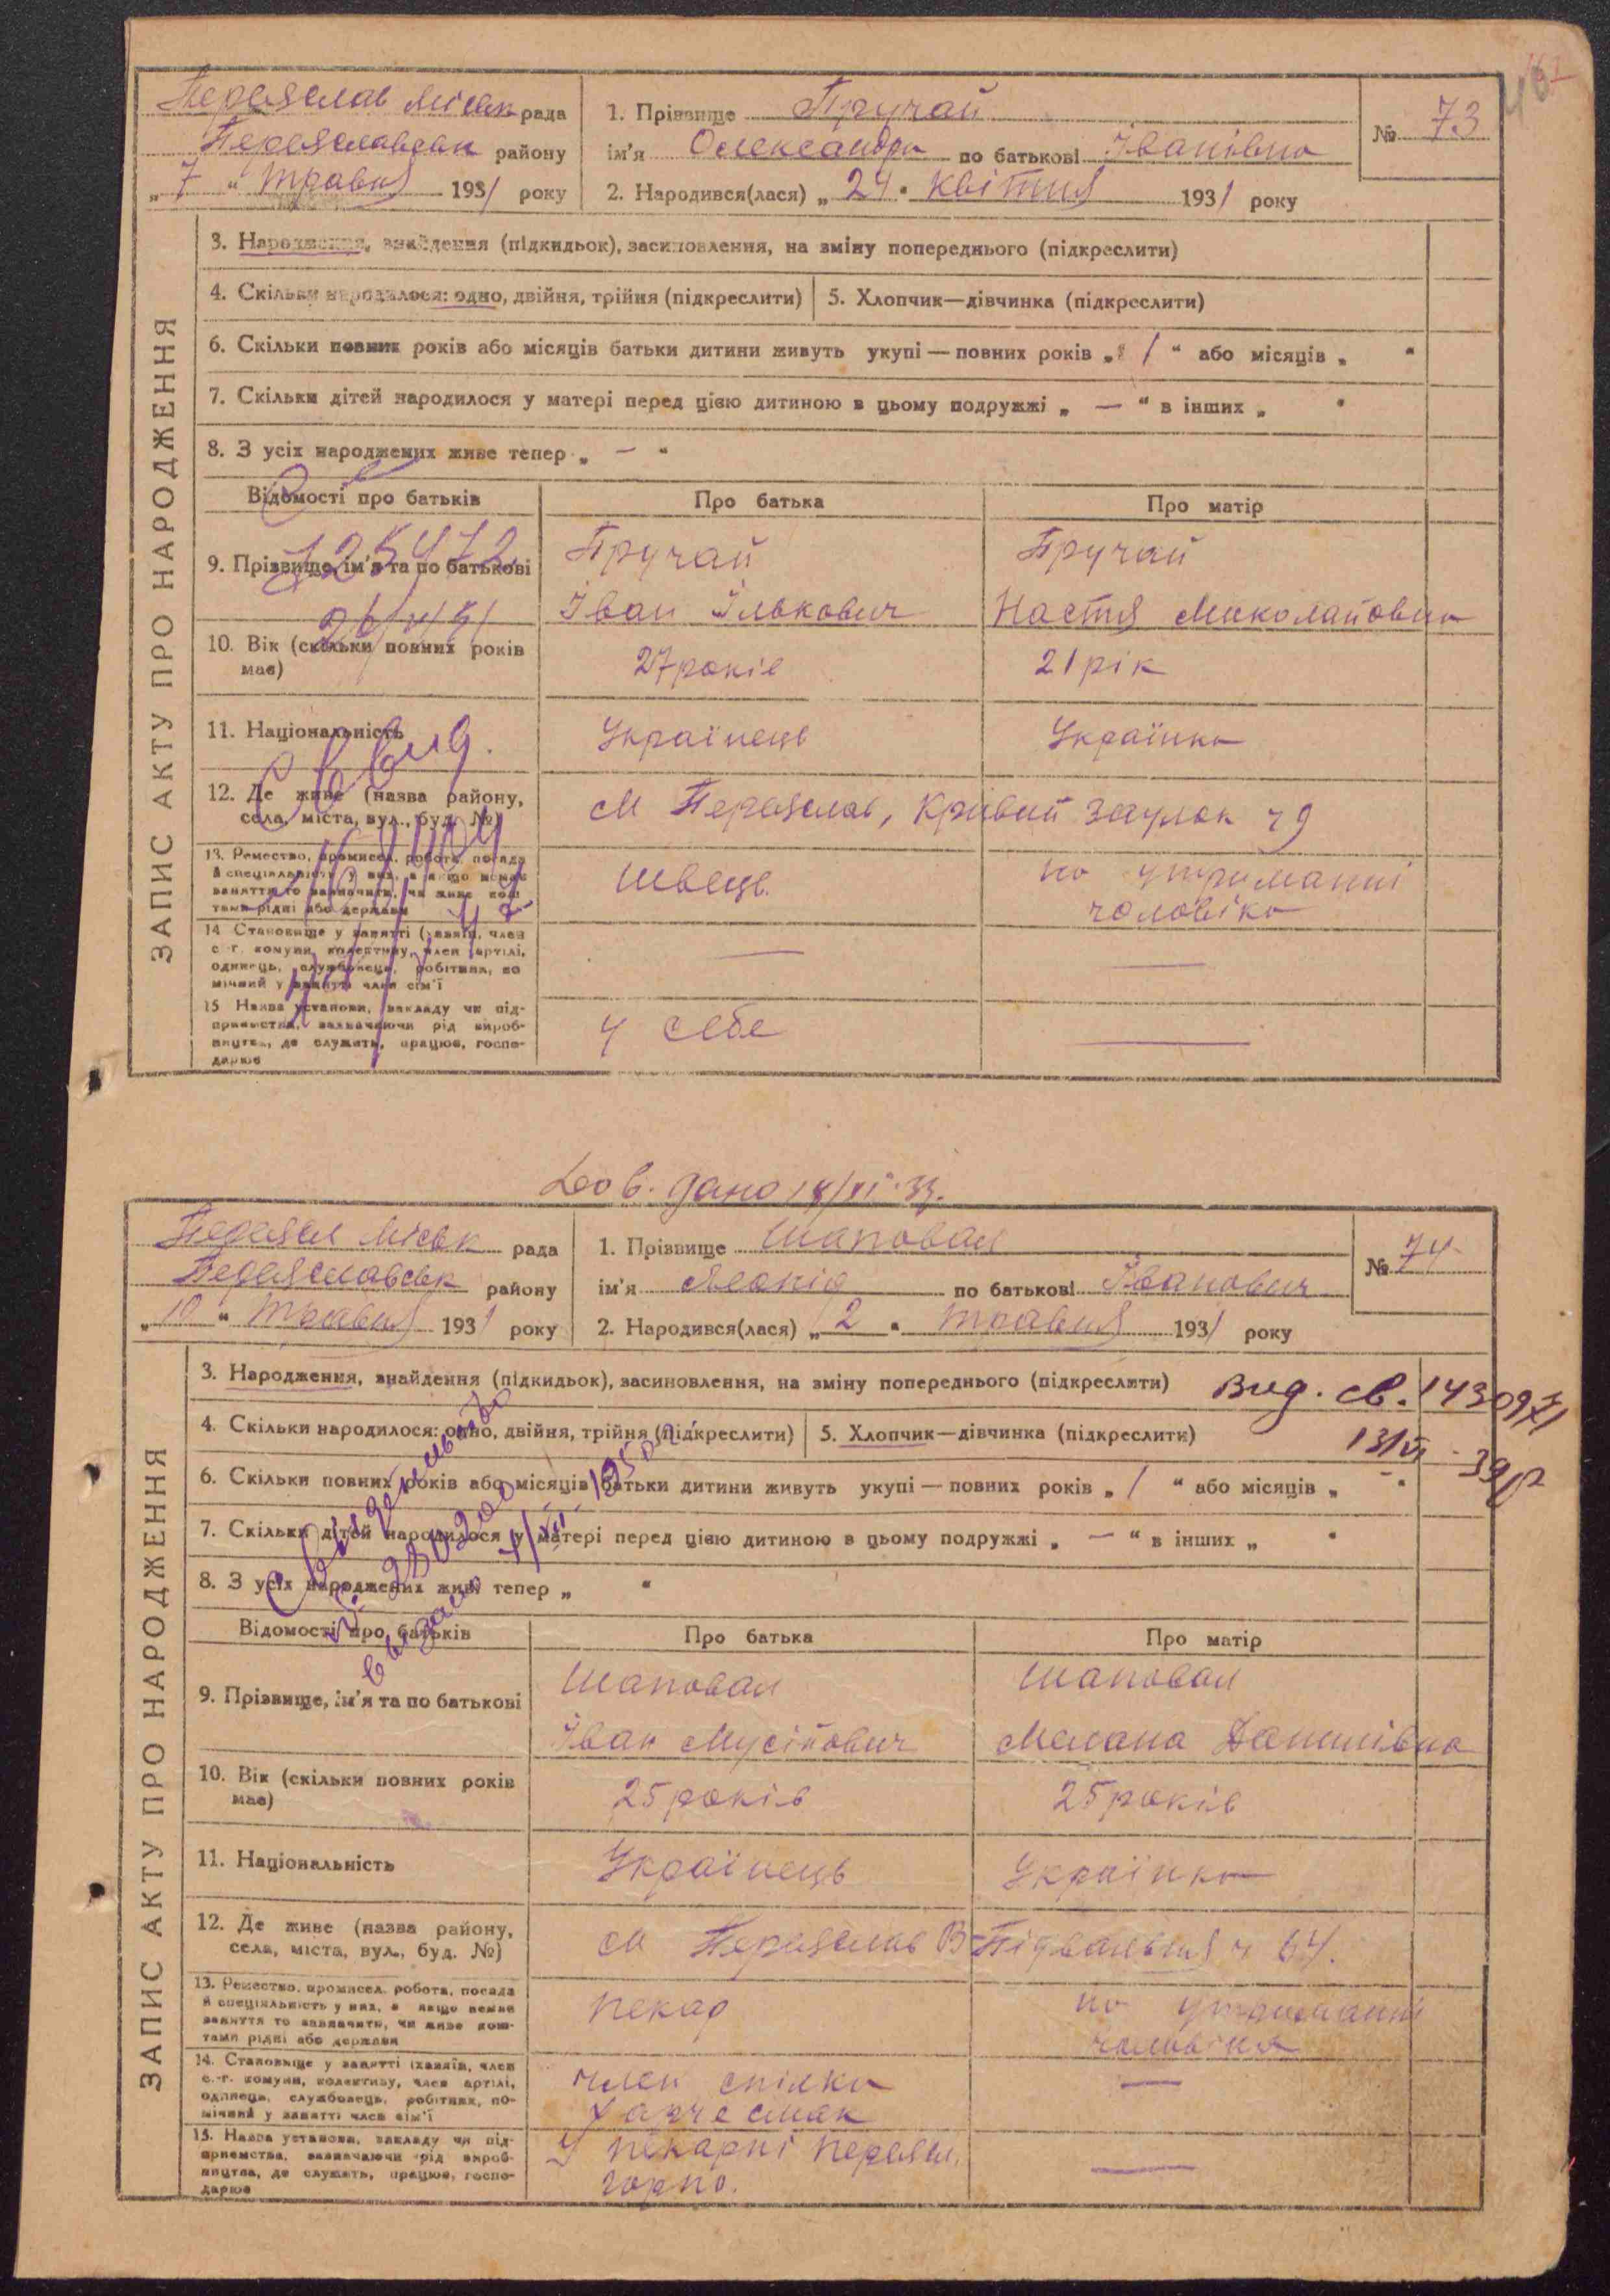 Переяслав Міськ рада
Переяславськ району
„ 7 “ травня 1931 року
1. Прізвище Пручай
ім'я Олександра по батькові Іванівна
2. Народився(лася) „ 24 “ квітня 1931 року
№ 73
ЗАПИС АКТУ ПРО НАРОДЖЕННЯ
3. Народження, знайдення (підкидьок), засиновлення, на зміну попереднього (підкреслити)
4. Скільки народилося: одно, двійня, трійня (підкреслити)
5. Хлопчик—дівчинка (підкреслити)
6. Скільки повних років або місяців батьки дитини живуть укупі — повних років „ 1 “ або місяців „ “
7. Скільки дітей народилося у матері перед цією дитиною в цьому подружжі „ — “ в інших „ “
8. З усіх народжених живе тепер „ — “
Відомості про батьків
Про батька
Про матір
9. Прізвище, ім'я та по батькові
Пручай
Іван Ількович
Пручай
Настя Миколаївна
10. Вік (скільки повних років має)
27 років
21 рік
11. Національність
Українець
Українка
12. Де живе (назва району, села, міста, вул., буд. №)
м Переяслав, Кривий заулок ч 9
13. Ремество, промисел, робота, посада й спеціяльність у них, а якщо немає заняття то зазначити, чи живе коштами рідні або держави
Швець
на утриманні
чоловіка
14. Становище у занятті (хазяїн, член с.-г. комуни, колективу, член артілі, одинець, службовець, робітник, помічний у занятті член сім'ї
—
—
15. Назва установи, закладу чи підприємства, зазначаючи рід виробництва, де служить, працює, господарює
У себе
—
Дов. дано 14/XI-33.
Переясл Міськ рада
Переяславськ району
„ 10 “ травня 1931 року
1. Прізвище Шаповал
ім'я Леонід по батькові Іванович
2. Народився(лася) „ 2 “ травня 1931 року
№ 74
ЗАПИС АКТУ ПРО НАРОДЖЕННЯ
3. Народження, знайдення (підкидьок), засиновлення, на зміну попереднього (підкреслити)
Вид. св.
4. Скільки народилося: одно, двійня, трійня (підкреслити)
5. Хлопчик—дівчинка (підкреслити)
6. Скільки повних років або місяців батьки дитини живуть укупі — повних років „ 1 “ або місяців „ “
7. Скільки дітей народилося у матері перед цією дитиною в цьому подружжі „ — “ в інших „ “
8. З усіх народжених живе тепер „ “
Відомості про батьків
Про батька
Про матір
9. Прізвище, ім'я та по батькові
Шаповал
Іван Мусійович
Шаповал
Мелана Данилівна
10. Вік (скільки повних років має)
25 років
25 років
11. Національність
Українець
Українка
12. Де живе (назва району, села, міста, вул., буд. №)
м Переяслав В-Підвальная ч 64.
13. Ремество, промисел, робота, посада й спеціяльність у них, а якщо немає заняття то зазначити, чи живе коштами рідні або держави
пекар
на утриманні
чоловіка
14. Становище у занятті (хазяїн, член с.-г. комуни, колективу, член артілі, одинець, службовець, робітник, помічний у занятті член сім'ї
член спілки
Харчесмак
—
15. Назва установи, закладу чи підприємства, зазначаючи рід виробництва, де служить, працює, господарює
У пекарні Переясл.
—